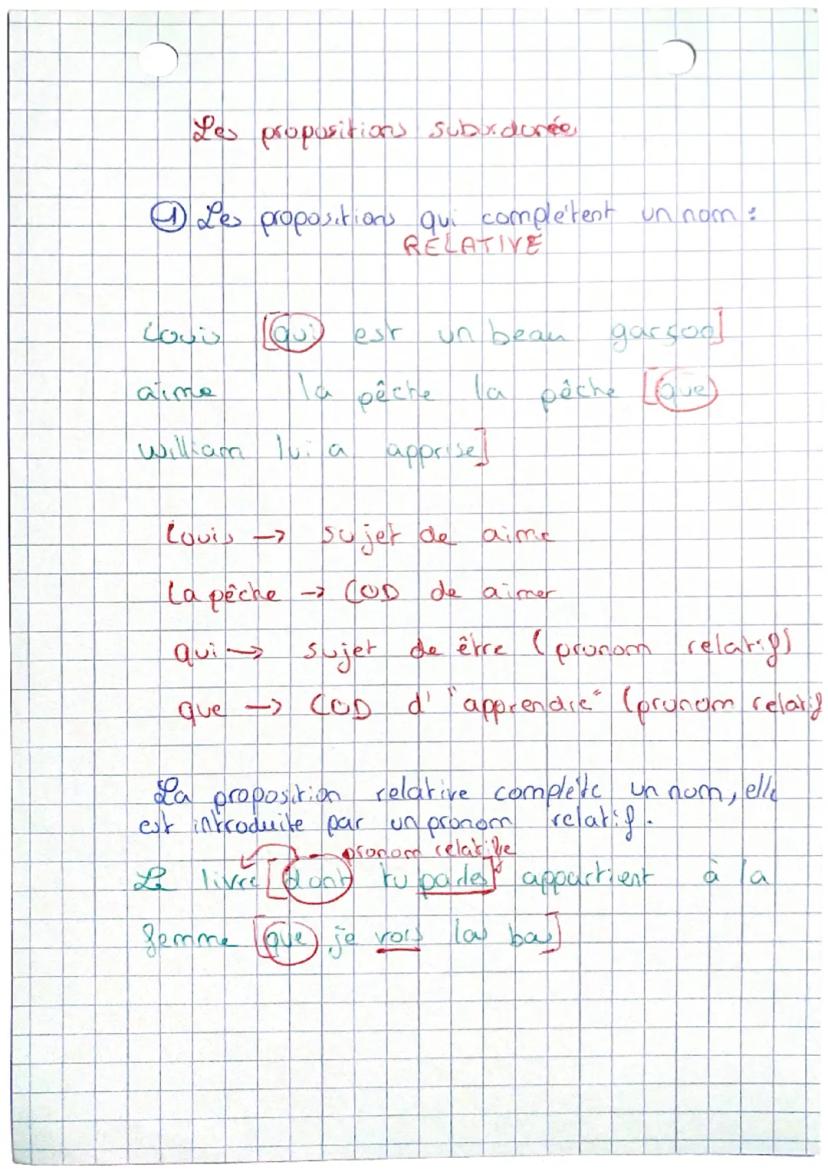 Les propositions subordonée
① Les propositions qui complètent un nom :
RELATIVE
Louis [qui est un beau garçon]
aime la pêche la pêche [que
William lui a apprise]
Louis → sujet de aime
La pêche → COD de aimer
qui → sujet de être (pronom relatif)
que → COD d' "apprendre" (pronom relatif
La proposition relative complète un nom, elle
est introduite par un pronom relatif.
pronom relatife
Le livre [dont tu parles] appartient à la
femme [que je vois las bas]